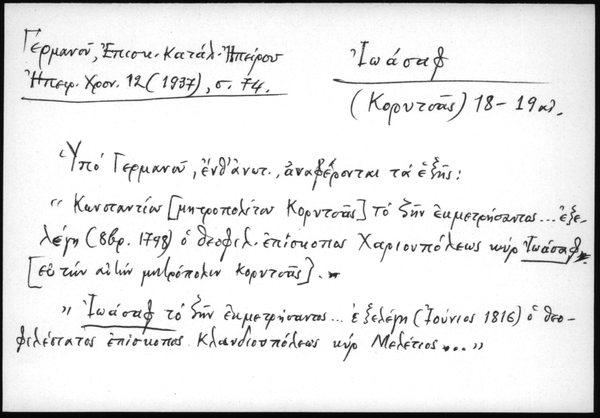 Γερμανοῦ, Ἐπισκ. Κατάλ. Ἠπείρου
Ἠπειρ. Χρον. 12 (1937), σ. 74.
Ἰωάσαφ
(Κορυτσᾶς) 18 - 19 αἰ.
Ὑπό Γερμανοῦ, ἐνθ' ἀνωτ., ἀναφέρονται τά ἑξῆς:
"Κωνσταντίου [μητροπολίτου Κορυτσᾶς] τό ζῆν ἐκμετρήσαντος... ἐξε-
λέγη (8βρ. 1798) ὁ θεοφιλ. ἐπίσκοπος Χαριουπόλεως κύρ Ἰωάσαφ
[εἰς τήν αὐτήν μητρόπολιν Κορυτσᾶς].
"Ἰωάσαφ τό ζῆν ἐκμετρήσαντος... ἐξελέγη (Ἰούνιος 1816) ὁ θεο-
φιλέστατος ἐπίσκοπος Κλαυδιουπόλεως κύρ Μελέτιος..."